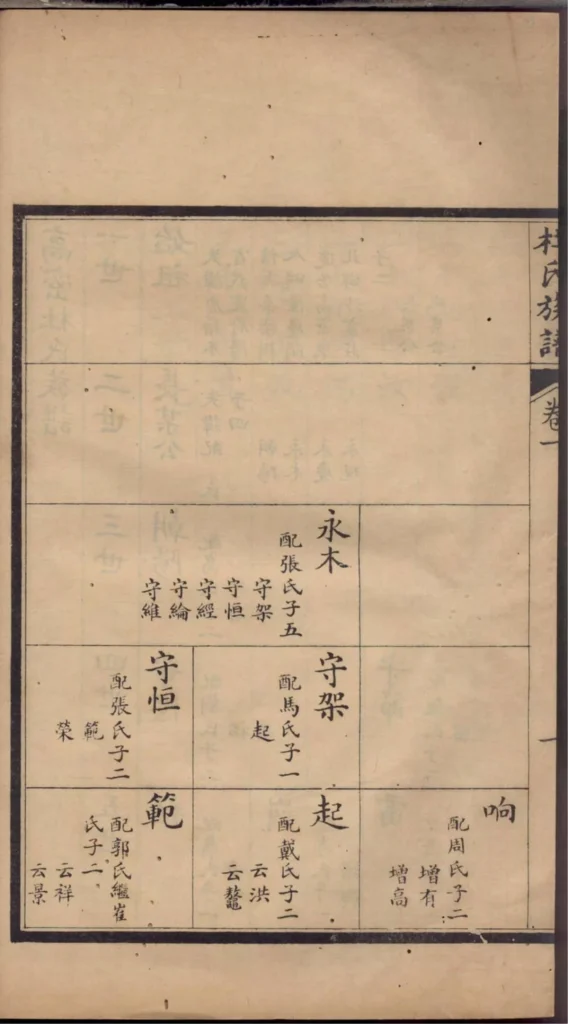 杜氏族譜
卷一
一
永木
配張氏子五
守架
守恒
守經
守綸
守維
守架
配馬氏子一
起
守恒
配張氏子二
範
榮
响
配周氏子二
增有
增高
起
配戴氏子二
云洪
云鼇
範
配郭氏繼崔
氏子二
云祥
云景